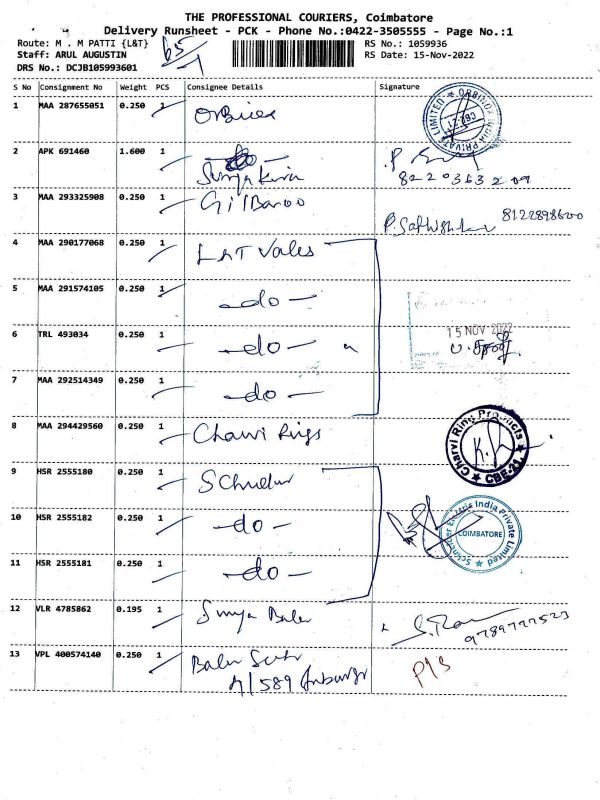 THE PROFESSIONAL COURIERS, Coimbatore
Delivery Runsheet - PCK - Phone No.:0422-3505555 - Page No.:1
Route: M . M PATTI {L&T}
RS No.: 1059936
Staff: ARUL AUGUSTIN
RS Date: 15-Nov-2022
DRS No.: DCJB105993601
65
S No Consignment No Weight PCS Consignee Details Signature
1 MAA 287655051 0.250 1
ORBINOX INDIA PRIVATE LIMITED
CBE-21
2 APK 691460 1.600 1 do
Surya Kiran
3 MAA 293325908 0.250 1 Gilbarco
8122898600
4 MAA 290177068 0.250 1 L&T Valves
5 MAA 291574105 0.250 1 -do-
6 TRL 493034 0.250 1 -do-
15 NOV 2022
7 MAA 292514349 0.250 1 -do-
8 MAA 294429560 0.250 1 Charvi Rings
Charvi Ring Products
CBE-21
9 HSR 2555180 0.250 1
10 HSR 2555182 0.250 1 -do-
Schneider Electric India Private Limited
COIMBATORE
11 HSR 2555181 0.250 1 -do-
12 VLR 4785862 0.195 1 Surya Bala
9789777523
13 VPL 400574140 0.250 1